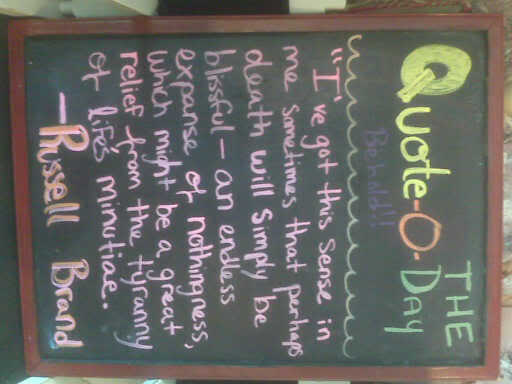 THE
QUOTE-O-DAY
Behold!!
"I've got this sense in
me sometimes that perhaps
death will simply be
blissful - an endless
expanse of nothingness,
which might be a great
relief from the tyranny
of life's minutiae.
- Russell Brand